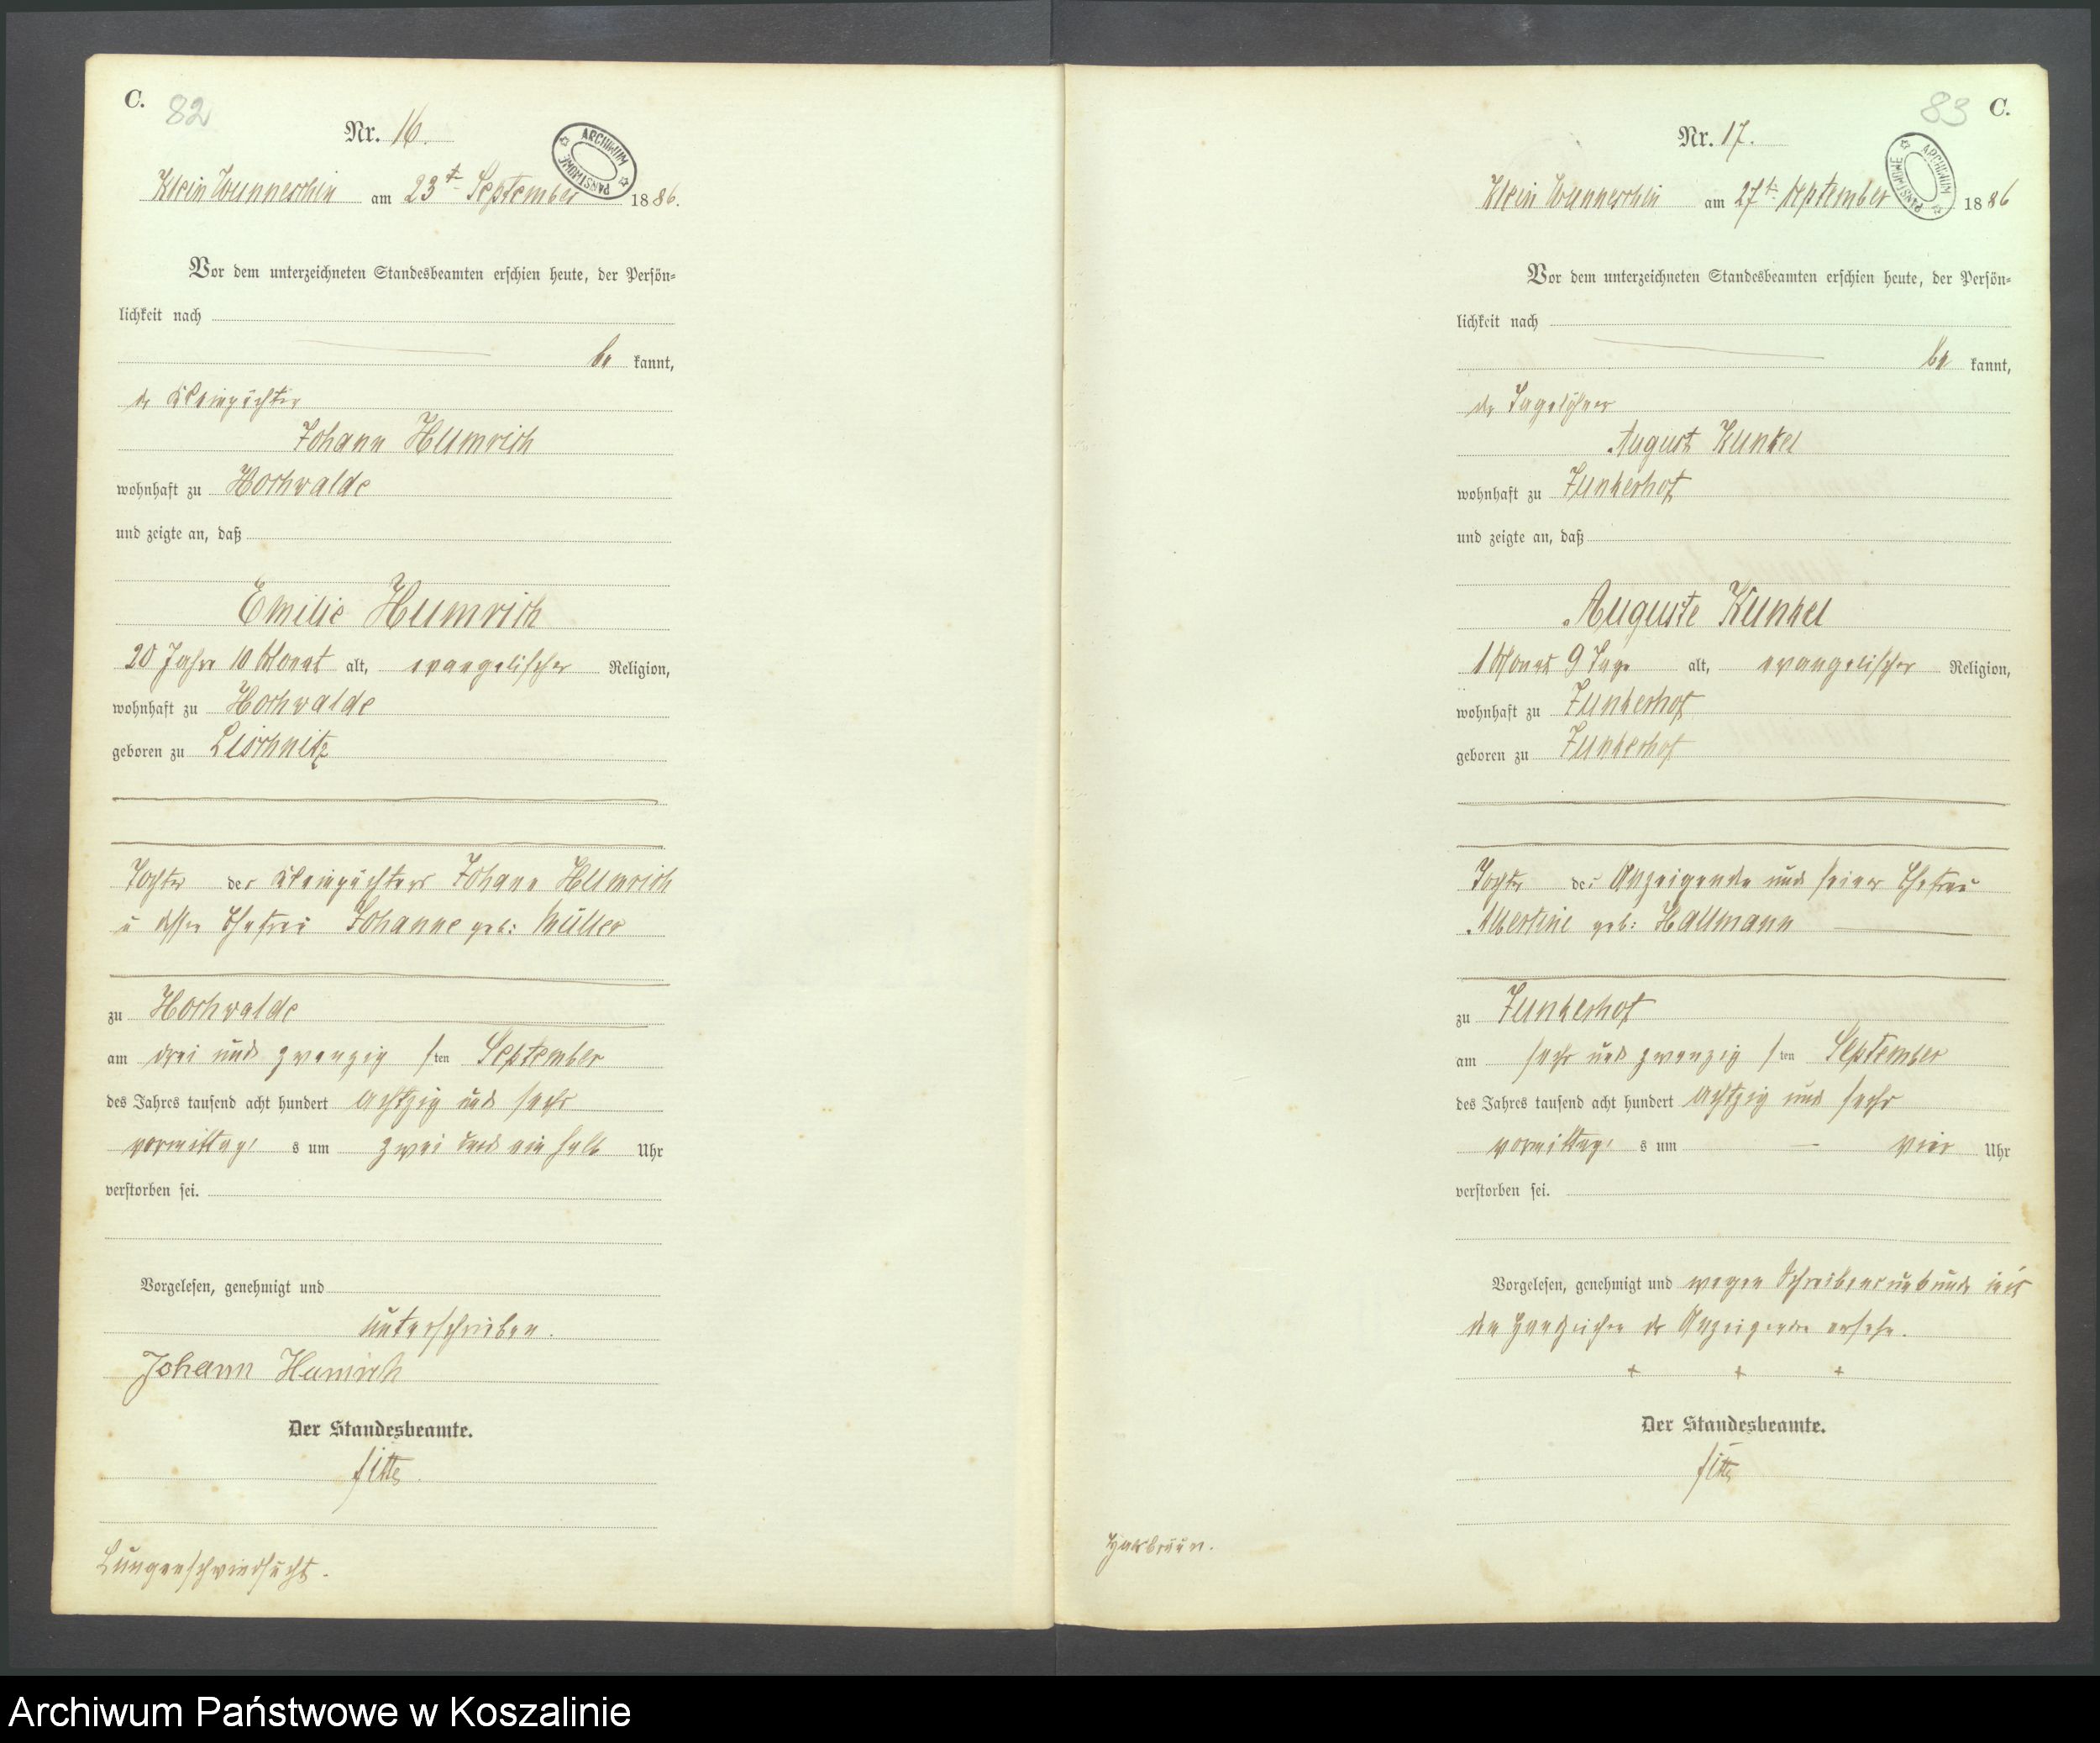 C.
82
Nr. 16.
ARCHIWUM PAŃSTWOWE
Klein Wunneschin am 23t September 1886.
Vor dem unterzeichneten Standesbeamten erschien heute, der Persön=
lichkeit nach
be kannt,
der Kleinpächter
Johann Humrich
wohnhaft zu Hochwalde
und zeigte an, daß
Emilie Humrich
20 Jahre 10 Monat alt, evangelischer Religion,
wohnhaft zu Hochwalde
geboren zu Lischnitz
Tochter des Kleinpächters Johann Humrich
u dessen Ehefrau Johanne geb: Müller
zu Hochwalde
am drei und zwanzig sten September
des Jahres tausend acht hundert achtzig und sechs
vormittags s um zwei und ein halb Uhr
verstorben sei.
Vorgelesen, genehmigt und
unterschrieben.
Johann Humrich
Der Standesbeamte.
Lungenschwindsucht.
83
C.
Nr. 17.
ARCHIWUM PAŃSTWOWE
Klein Wunneschin am 27t September 1886
Vor dem unterzeichneten Standesbeamten erschien heute, der Persön=
lichkeit nach
be kannt,
der Tagelöhner
August Kunkel
wohnhaft zu Junkerhof
und zeigte an, daß
Auguste Kunkel
1 Monat 9 Tage alt, evangelischer Religion,
wohnhaft zu Junkerhof
geboren zu Junkerhof
Tochter des Anzeigende und seiner Ehefrau
Albertine geb: Hallmann
zu Junkerhof
am sechs und zwanzig sten September
des Jahres tausend acht hundert achtzig und sechs
vormittags s um — vier Uhr
verstorben sei.
Vorgelesen, genehmigt und wegen Schreibensunkunde mit
den Handzeichen des Anzeigende versehen.
+ + +
Der Standesbeamte.
Archiwum Państwowe w Koszalinie